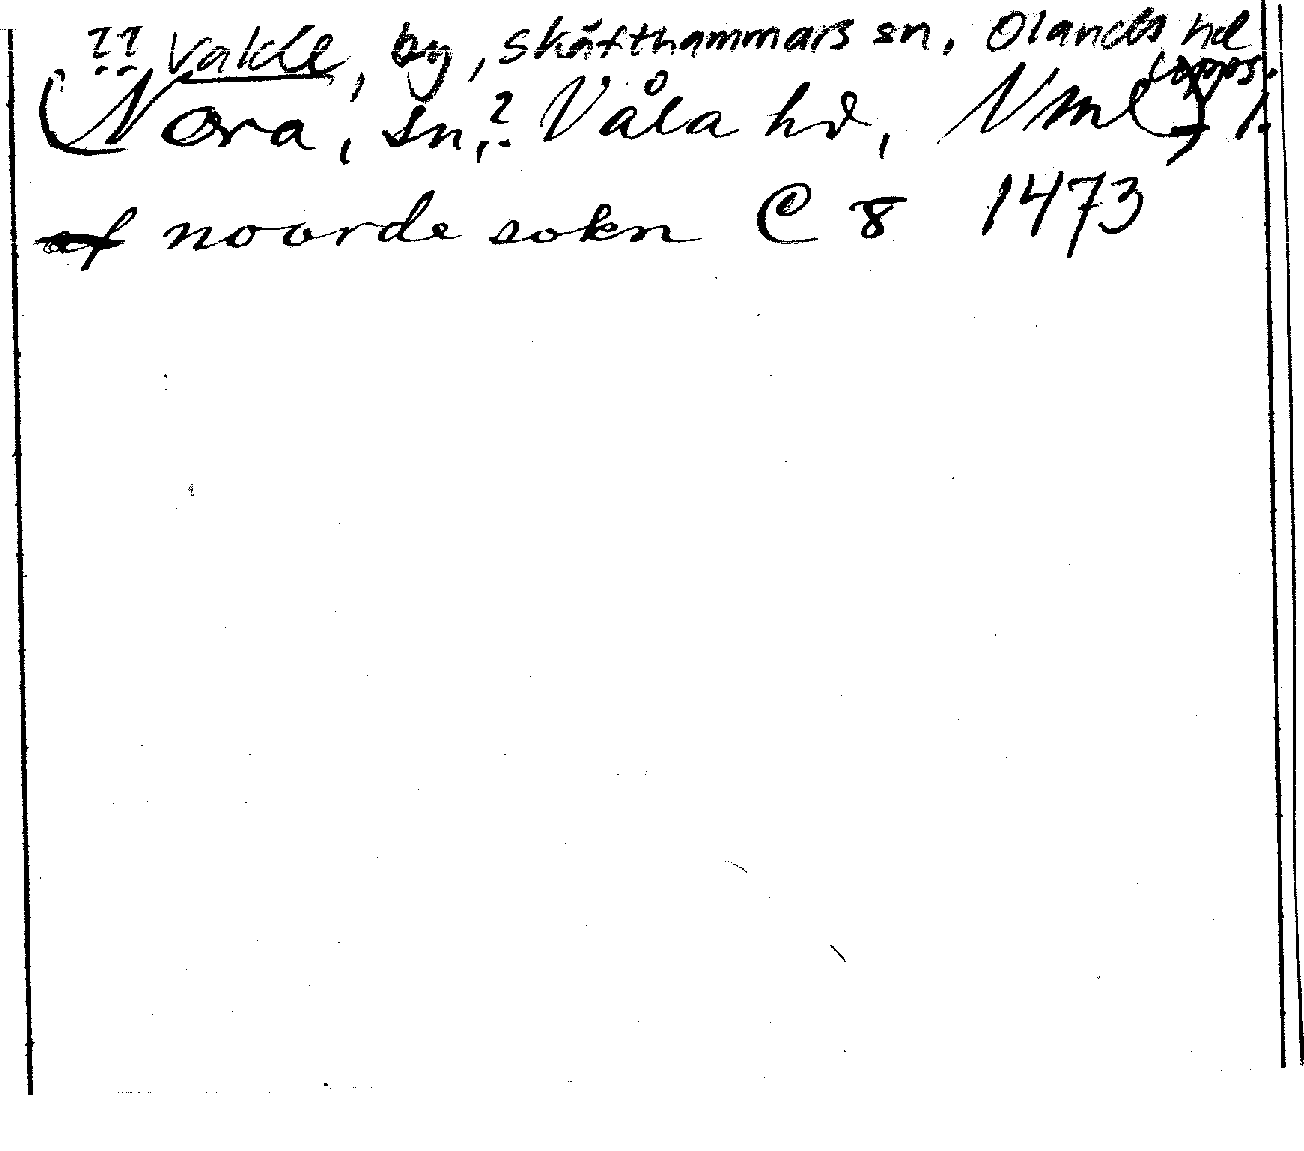 ?? Vakle, by, Skäfthammars sn, Olands hd
Upps.
(Nora, sn,? Våla hd, Vml)
af noorde sokn C 8 1473